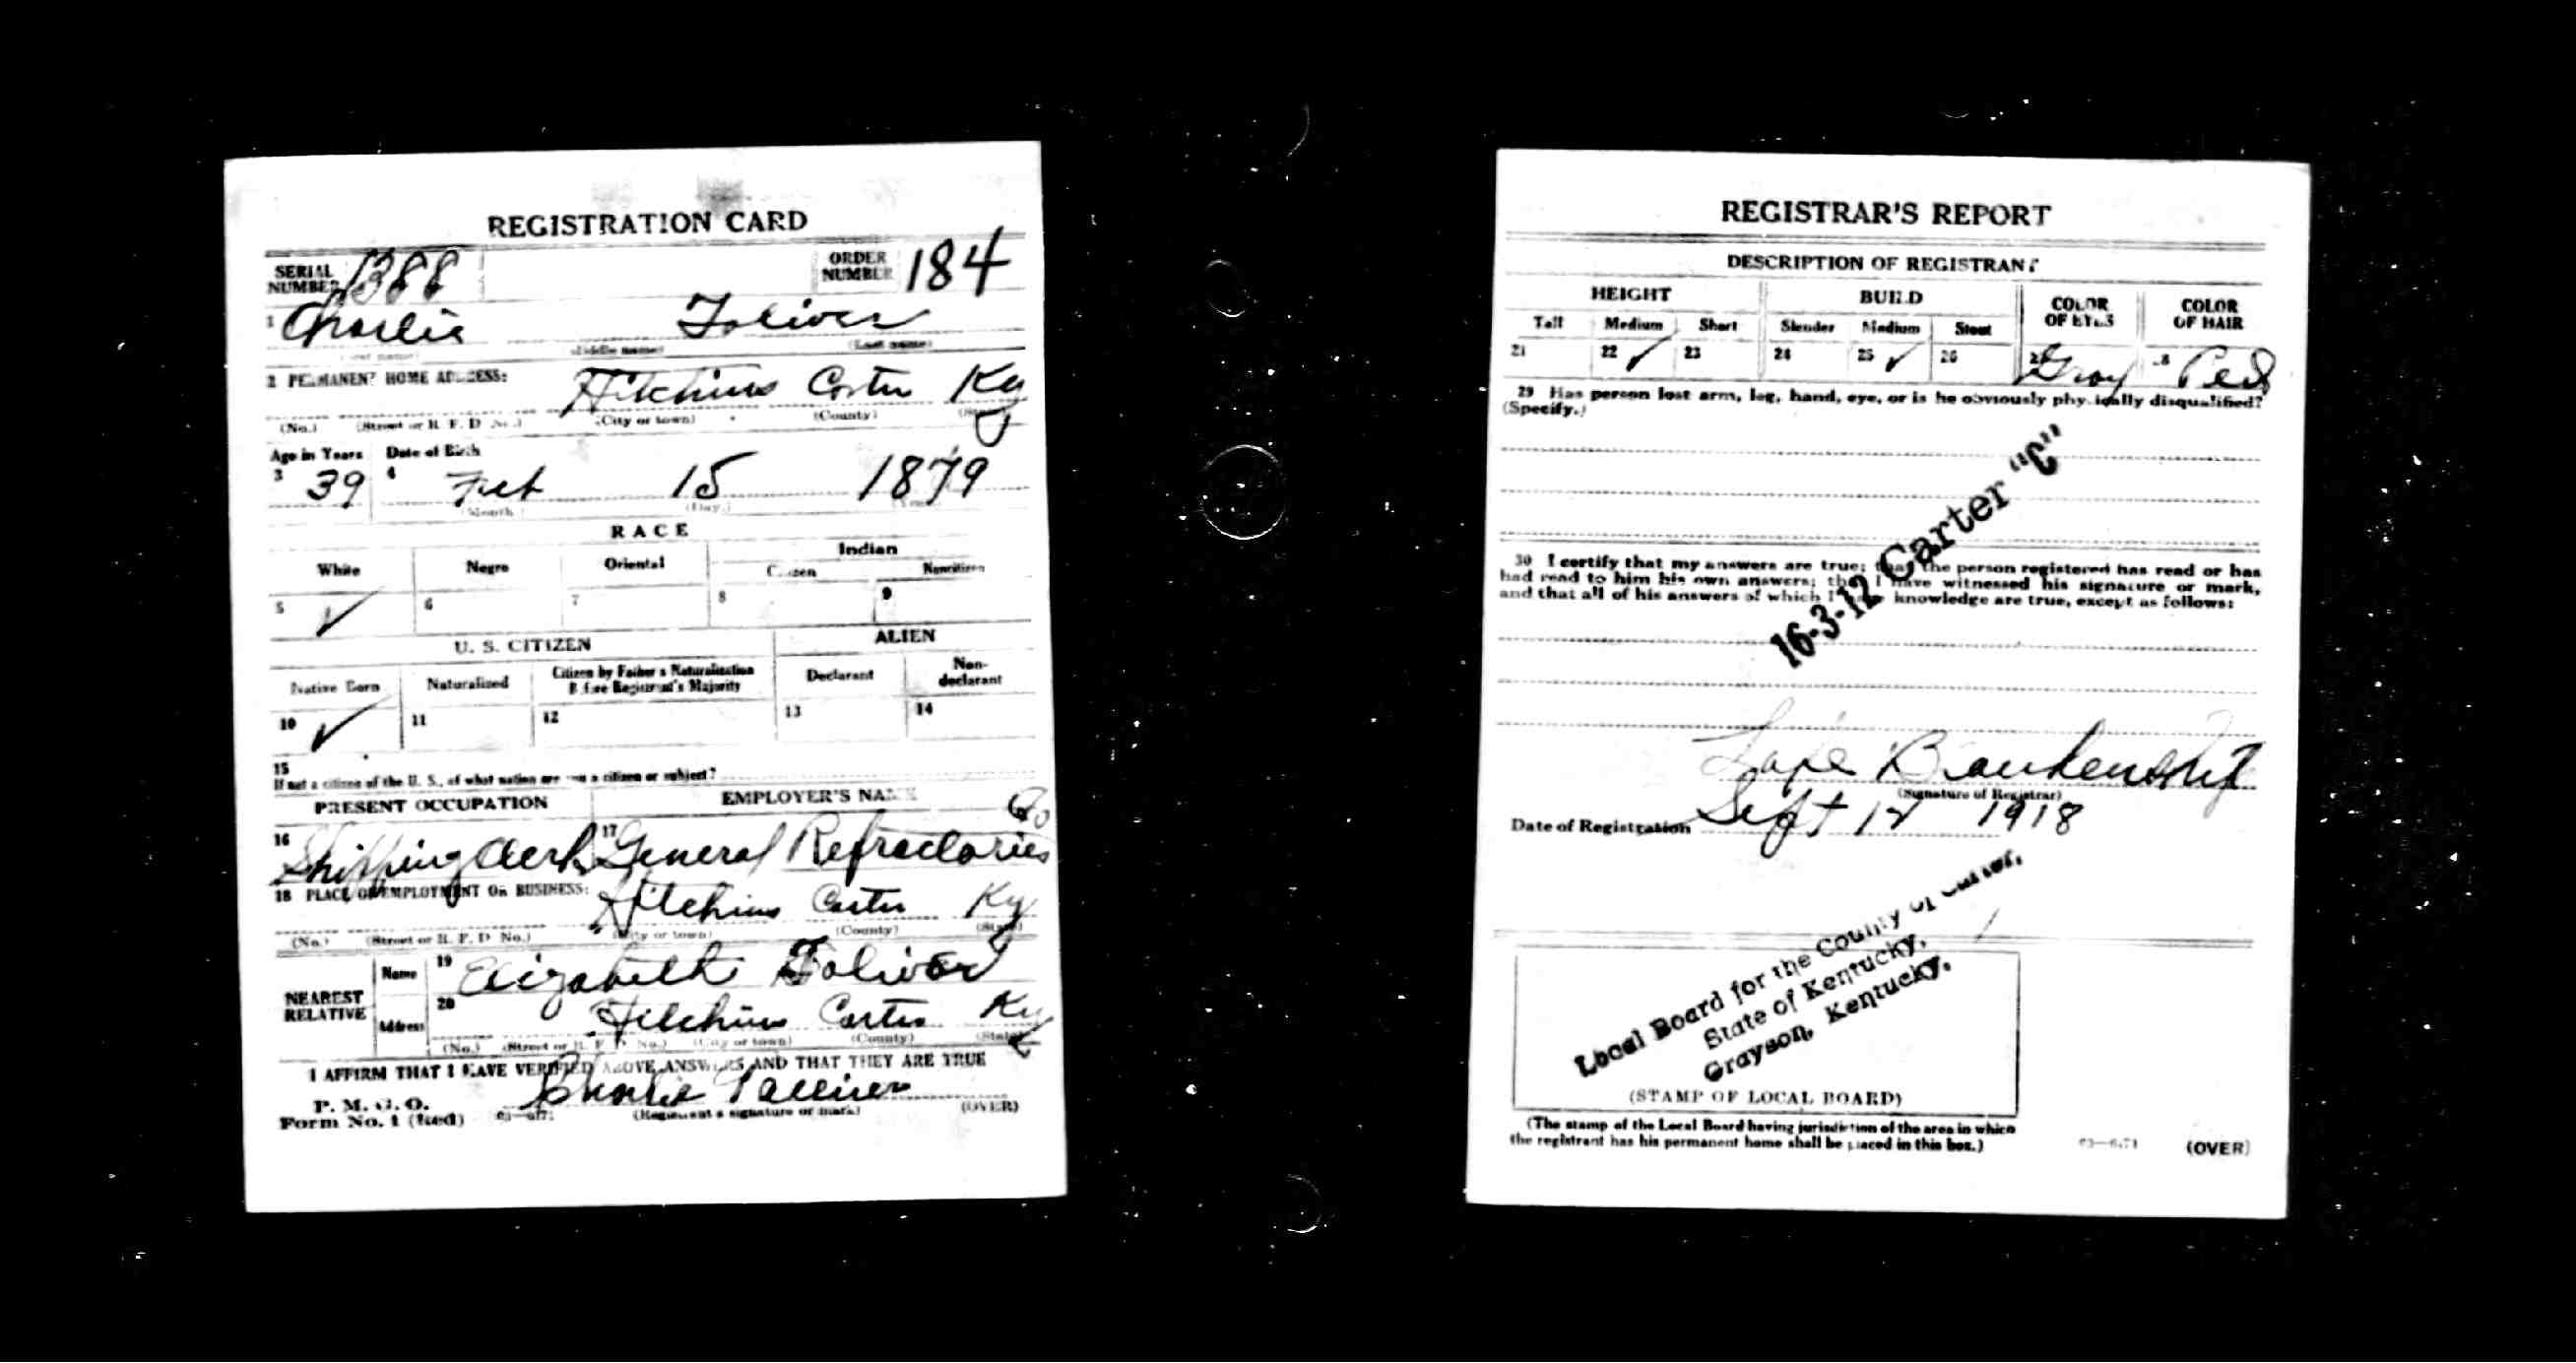 REGISTRATION CARD
SERIAL NUMBER 1388 ORDER NUMBER 184
1 Charlie Toliver
(First name) (Middle name) (Last name)
2 PERMANENT HOME ADDRESS: Hitchins Carter Ky
(No.) (Street or R. F. D. No.) (City or town) (County) (State)
Age in Years Date of Birth
3 39 4 Feb 15 1879
(Month.) (Day.) (Year.)
RACE
White Negro Oriental Indian
Citizen Noncitizen
5 ✓ 6 7 8 9
U. S. CITIZEN ALIEN
Native Born Naturalized Citizen by Father's Naturalization Before Registrant's Majority Declarant Non-declarant
10 ✓ 11 12 13 14
15
If not a citizen of the U. S., of what nation are you a citizen or subject?
PRESENT OCCUPATION EMPLOYER'S NAME
16 Shipping Clerk 17 General Refractories Co
18 PLACE OF EMPLOYMENT OR BUSINESS: Hitchins Carter Ky
(No.) (Street or R. F. D. No.) (City or town) (County) (State)
NEAREST RELATIVE Name 19 Elizabeth Toliver
Address 20 Hitchins Carter Ky
(No.) (Street or R. F. D. No.) (City or town) (County) (State)
I AFFIRM THAT I HAVE VERIFIED ABOVE ANSWERS AND THAT THEY ARE TRUE
P. M. G. O.
Form No. 1 (Red) Charlie Talliver
(Registrant's signature or mark) (OVER)
REGISTRAR'S REPORT
DESCRIPTION OF REGISTRANT
HEIGHT BUILD COLOR OF EYES COLOR OF HAIR
Tall Medium Short Slender Medium Stout
21 22 ✓ 23 24 25 ✓ 26 27 Gray 28 Red
29 Has person lost arm, leg, hand, eye, or is he obviously physically disqualified?
(Specify.)
16-3-12 Carter "C"
30 I certify that my answers are true; that the person registered has read or has
had read to him his own answers; that I have witnessed his signature or mark,
and that all of his answers of which I have knowledge are true, except as follows:
(Signature of Registrar)
Date of Registration Sept 12 1918
Local Board for the County of Carter,
State of Kentucky,
Grayson, Kentucky.
(STAMP OF LOCAL BOARD)
(The stamp of the Local Board having jurisdiction of the area in which
the registrant has his permanent home shall be placed in this box.)
(OVER)